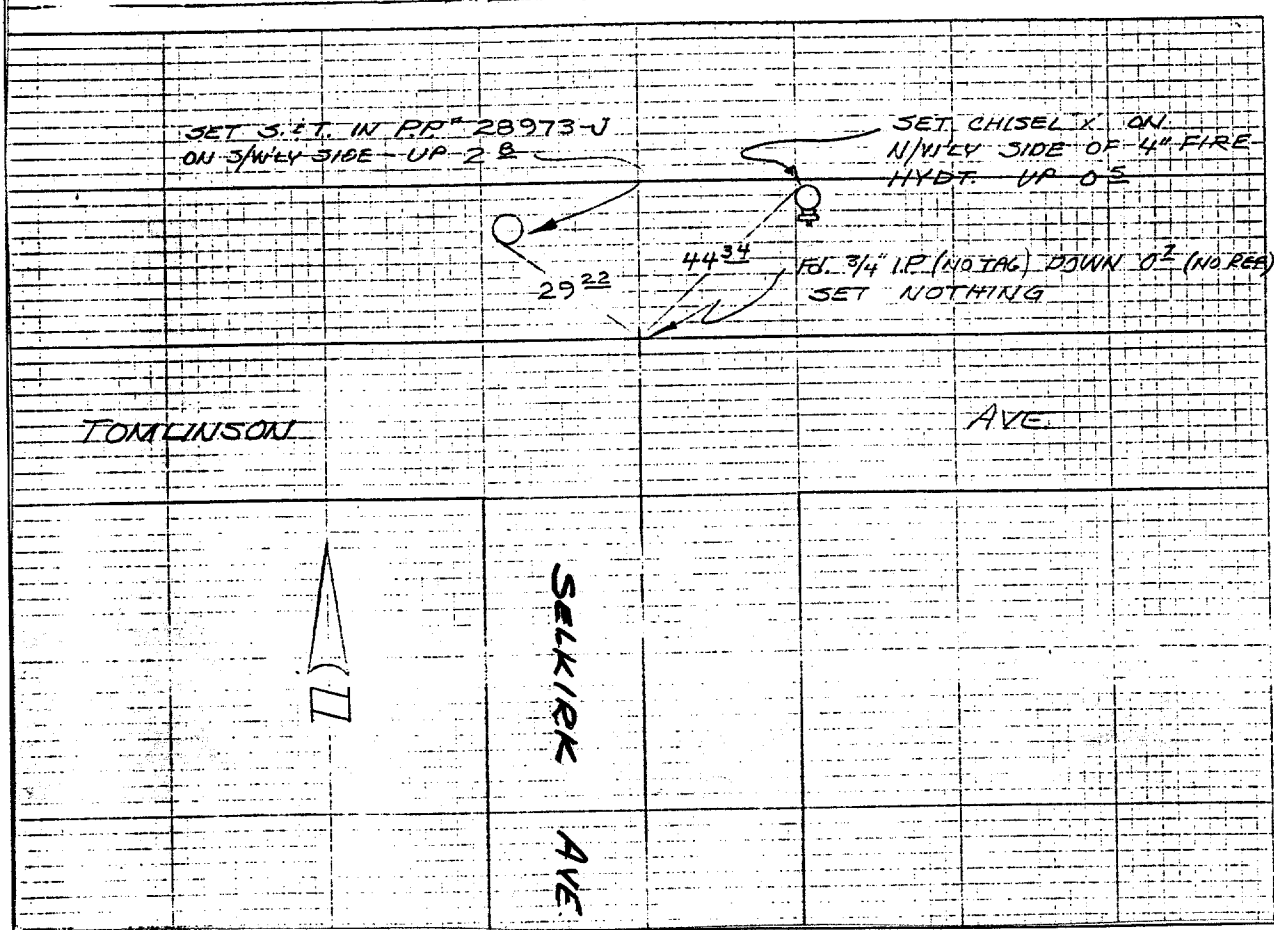 SET S.&T. IN P.P.# 28973-J
ON S/W'LY SIDE - UP 2 8
SET CHISEL X ON
N/W'LY SIDE OF 4" FIRE
HYDT. UP 0 5
44 34
29 22
Fd. 3/4" I.P. (NO TAG) DOWN 0 2 (NO REF)
SET NOTHING
TOMLINSON AVE.
SELKIRK AVE.
N